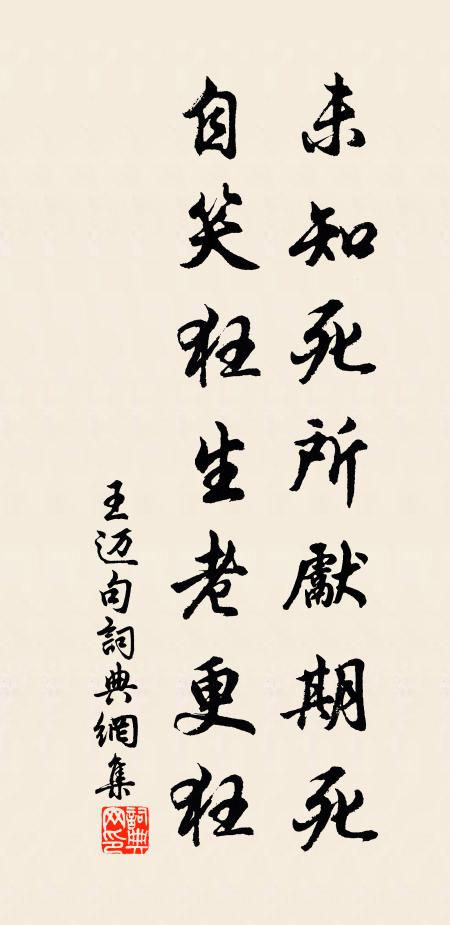 未知死所獻期死
自笑狂生老更狂
王迈句詞典網集
詞典网印